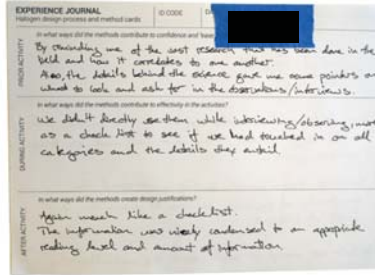 EXPERIENCE JOURNAL
Halogen design process and method cards
ID CODE
PRIOR ACTIVITY
In what ways did the methods contribute to confidence and
By reminding me of the vast research that has been done in the
field and how it correlates to one another.
Also, the details behind the science gave me some pointers on
what to look and ask for in the observations/interviews.
DURING ACTIVITY
In what ways did the methods contribute to effectivity in the activities?
We didn't directly use them while interviewing/observing, more
as a check list to see if we had touched in on all
categories and the details they entail.
AFTER ACTIVITY
In what ways did the methods create design justifications?
Again much like a checklist.
The information was nicely condensed to an appropriate
reading level and amount of information.